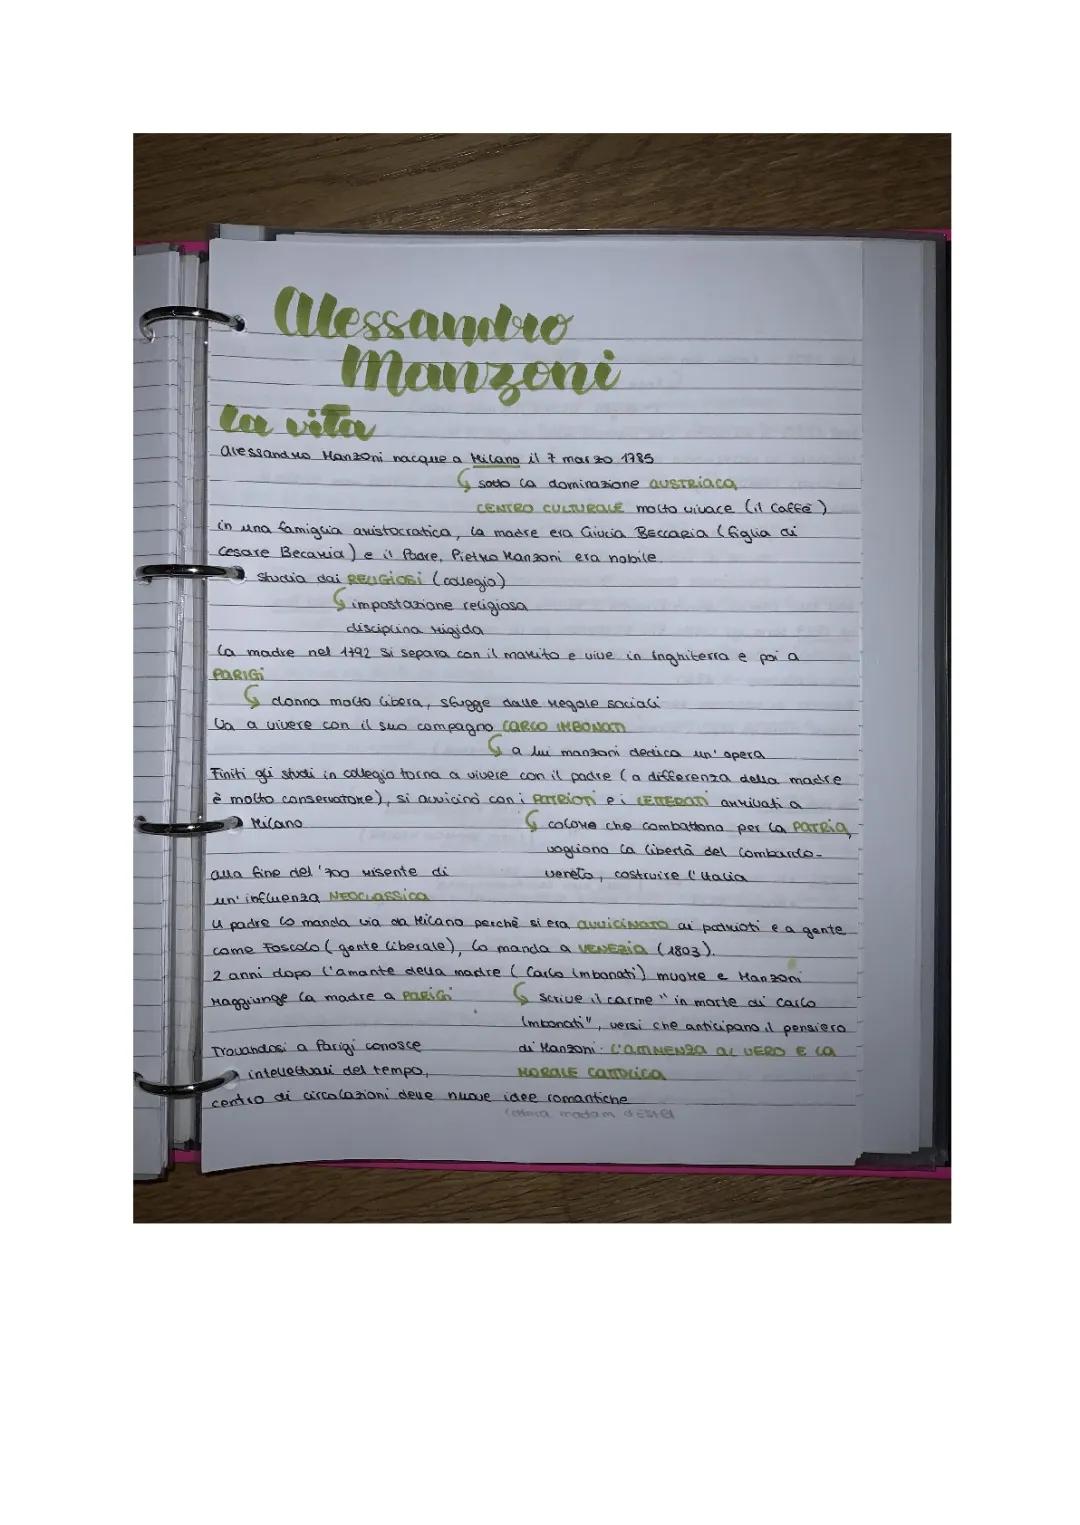 Alessandro
Manzoni
la vita
Alessandro Manzoni nacque a Milano il 7 marzo 1785
sotto la dominazione AUSTRIACA
CENTRO CULTURALE molto vivace (il Caffè)
in una famiglia aristocratica, la madre era Giulia Beccaria (figlia di
Cesare Beccaria) e il Padre, Pietro Manzoni era nobile.
studia dai RELIGIOSI (collegio)
impostazione religiosa
disciplina rigida
la madre nel 1792 si separa con il marito e vive in Inghiterra e poi a
PARIGI
donna molto libera, sfugge dalle regole sociali
Va a vivere con il suo compagno CARLO IMBONATI
a lui manzoni dedica un' opera
Finiti gli studi in collegio torna a vivere con il padre (a differenza della madre
è molto conservatore), si avvicinò con i PATRIOTI e i LETTERATI arrivati a
Milano
coloro che combattono per la PATRIA,
vogliono la libertà del Lombardo-
veneto, costruire l'Italia
alla fine del '700 risente di
un' influenza NEOCLASSICA
Il padre lo manda via da Milano perchè si era AVVICINATO ai patrioti e a gente
come Foscolo (gente liberale), lo manda a VENEZIA (1803).
2 anni dopo l'amante della madre (Carlo Imbonati) muore e Manzoni
raggiunge la madre a PARIGI
scrive il carme " in morte di Carlo
Imbonati", versi che anticipano il pensiero
di Manzoni: L'ATTINENZA AL VERO E LA
MORALE CATTOLICA
Trovandosi a Parigi conosce
intellettuali del tempo,
centro di circolazioni delle nuove idee romantiche
madam